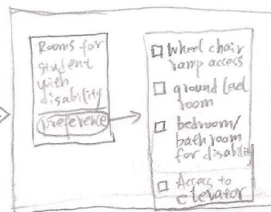 Rooms for
student
with
disability
preference
wheel chair
ramp access
ground level
room
bedroom/
bathroom
for disability
Access to
elevator